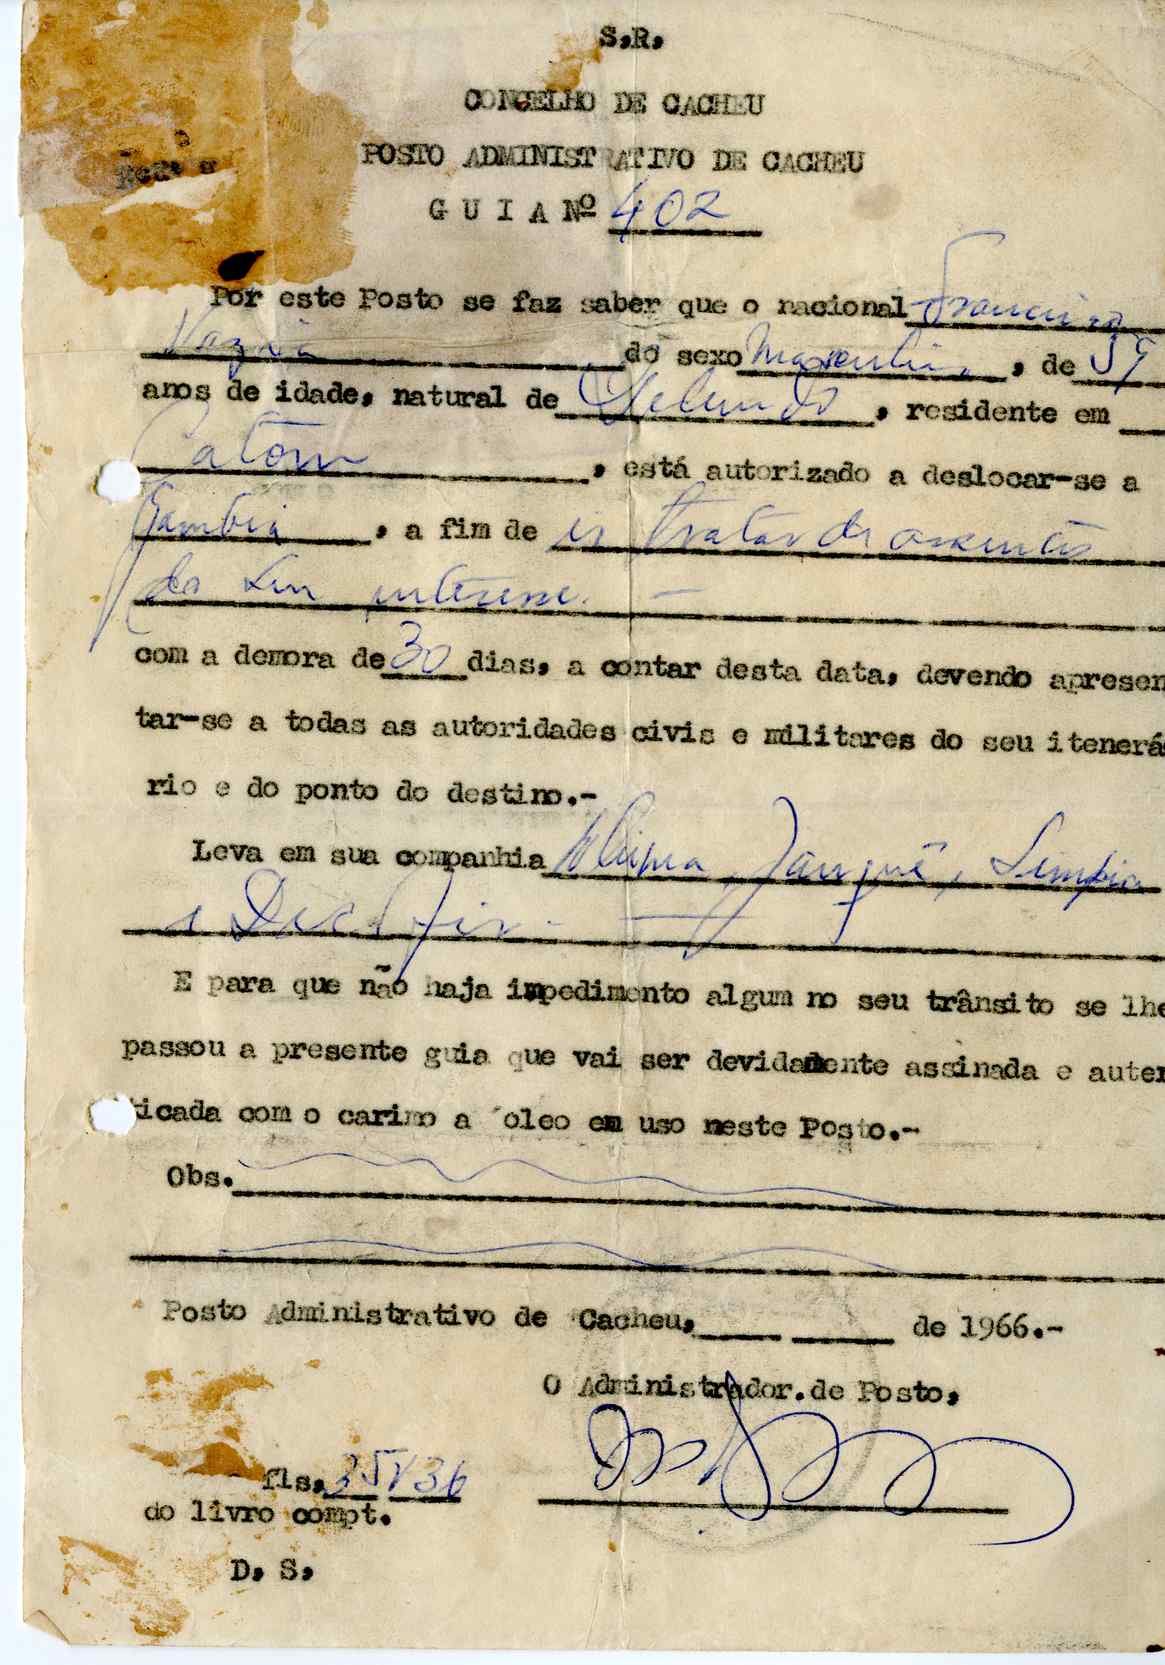 S.R.
CONCELHO DE CACHEU
POSTO ADMINISTRATIVO DE CACHEU
GUIA Nº 402
Por este Posto se faz saber que o nacional Francisco
Vaz do sexo Masculino, de 59
anos de idade, natural de, residente em
Catom, está autorizado a deslocar-se a
Gambia, a fim de ir tratar de assuntos
do seu interesse. -
com a demora de 30 dias, a contar desta data, devendo apresen
tar-se a todas as autoridades civis e militares do seu itenerá
rio e do ponto do destino.-
Leva em sua companhia
e
E para que não haja impedimento algum no seu trânsito se lhe
passou a presente guia que vai ser devidamente assinada e auten
ticada com o carimo a óleo em uso neste Posto.-
Obs.
Posto Administrativo de Cacheu, de 1966.-
O Administrador.de Posto,
fls. 35V36
do livro compt.
D. S.